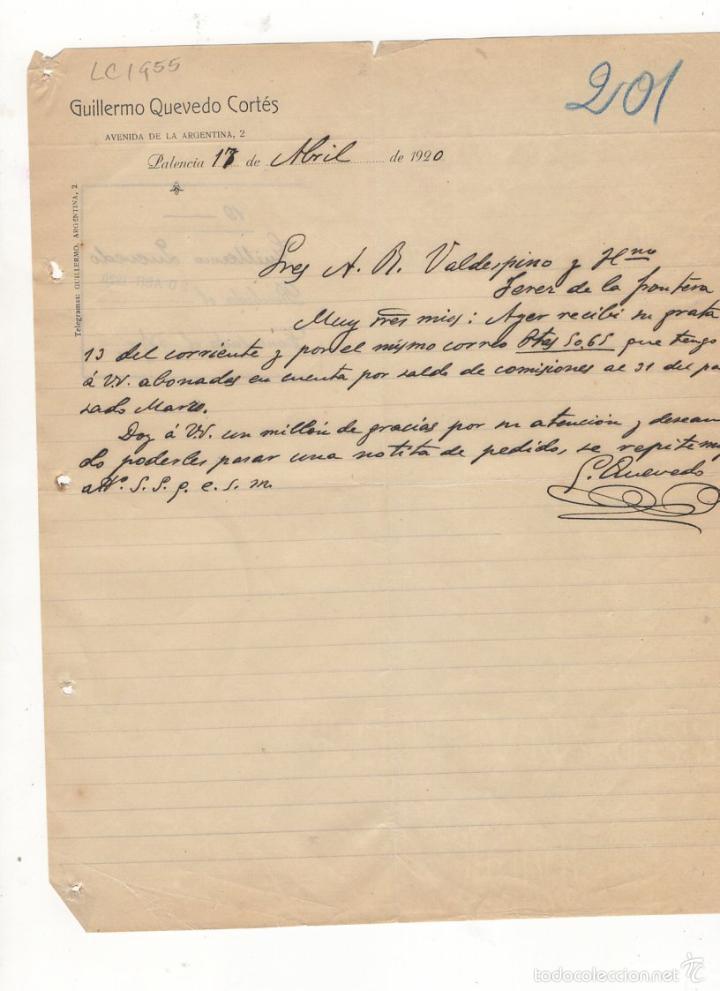 LC1955
201
Guillermo Quevedo Cortés
AVENIDA DE LA ARGENTINA, 2
Palencia 17 de Abril de 1920
Telegramas: GUILLERMO. ARGENTINA, 2
Sres A. R. Valdespino y Hno
Jerez de la frontera
Muy sres mios: Ayer recibí su grata
13 del corriente y por el mismo correo Ptas 50,65 que tengo
á VV. abonadas en cuenta por saldo de comisiones al 31 del pa
sado Marzo.
Doy á VV. un millón de gracias por su atención y desean
do poderles pasar una notita de pedido, se repite muy
atto. S. S. q. e. s. m.
G. Quevedo
todocoleccion.net